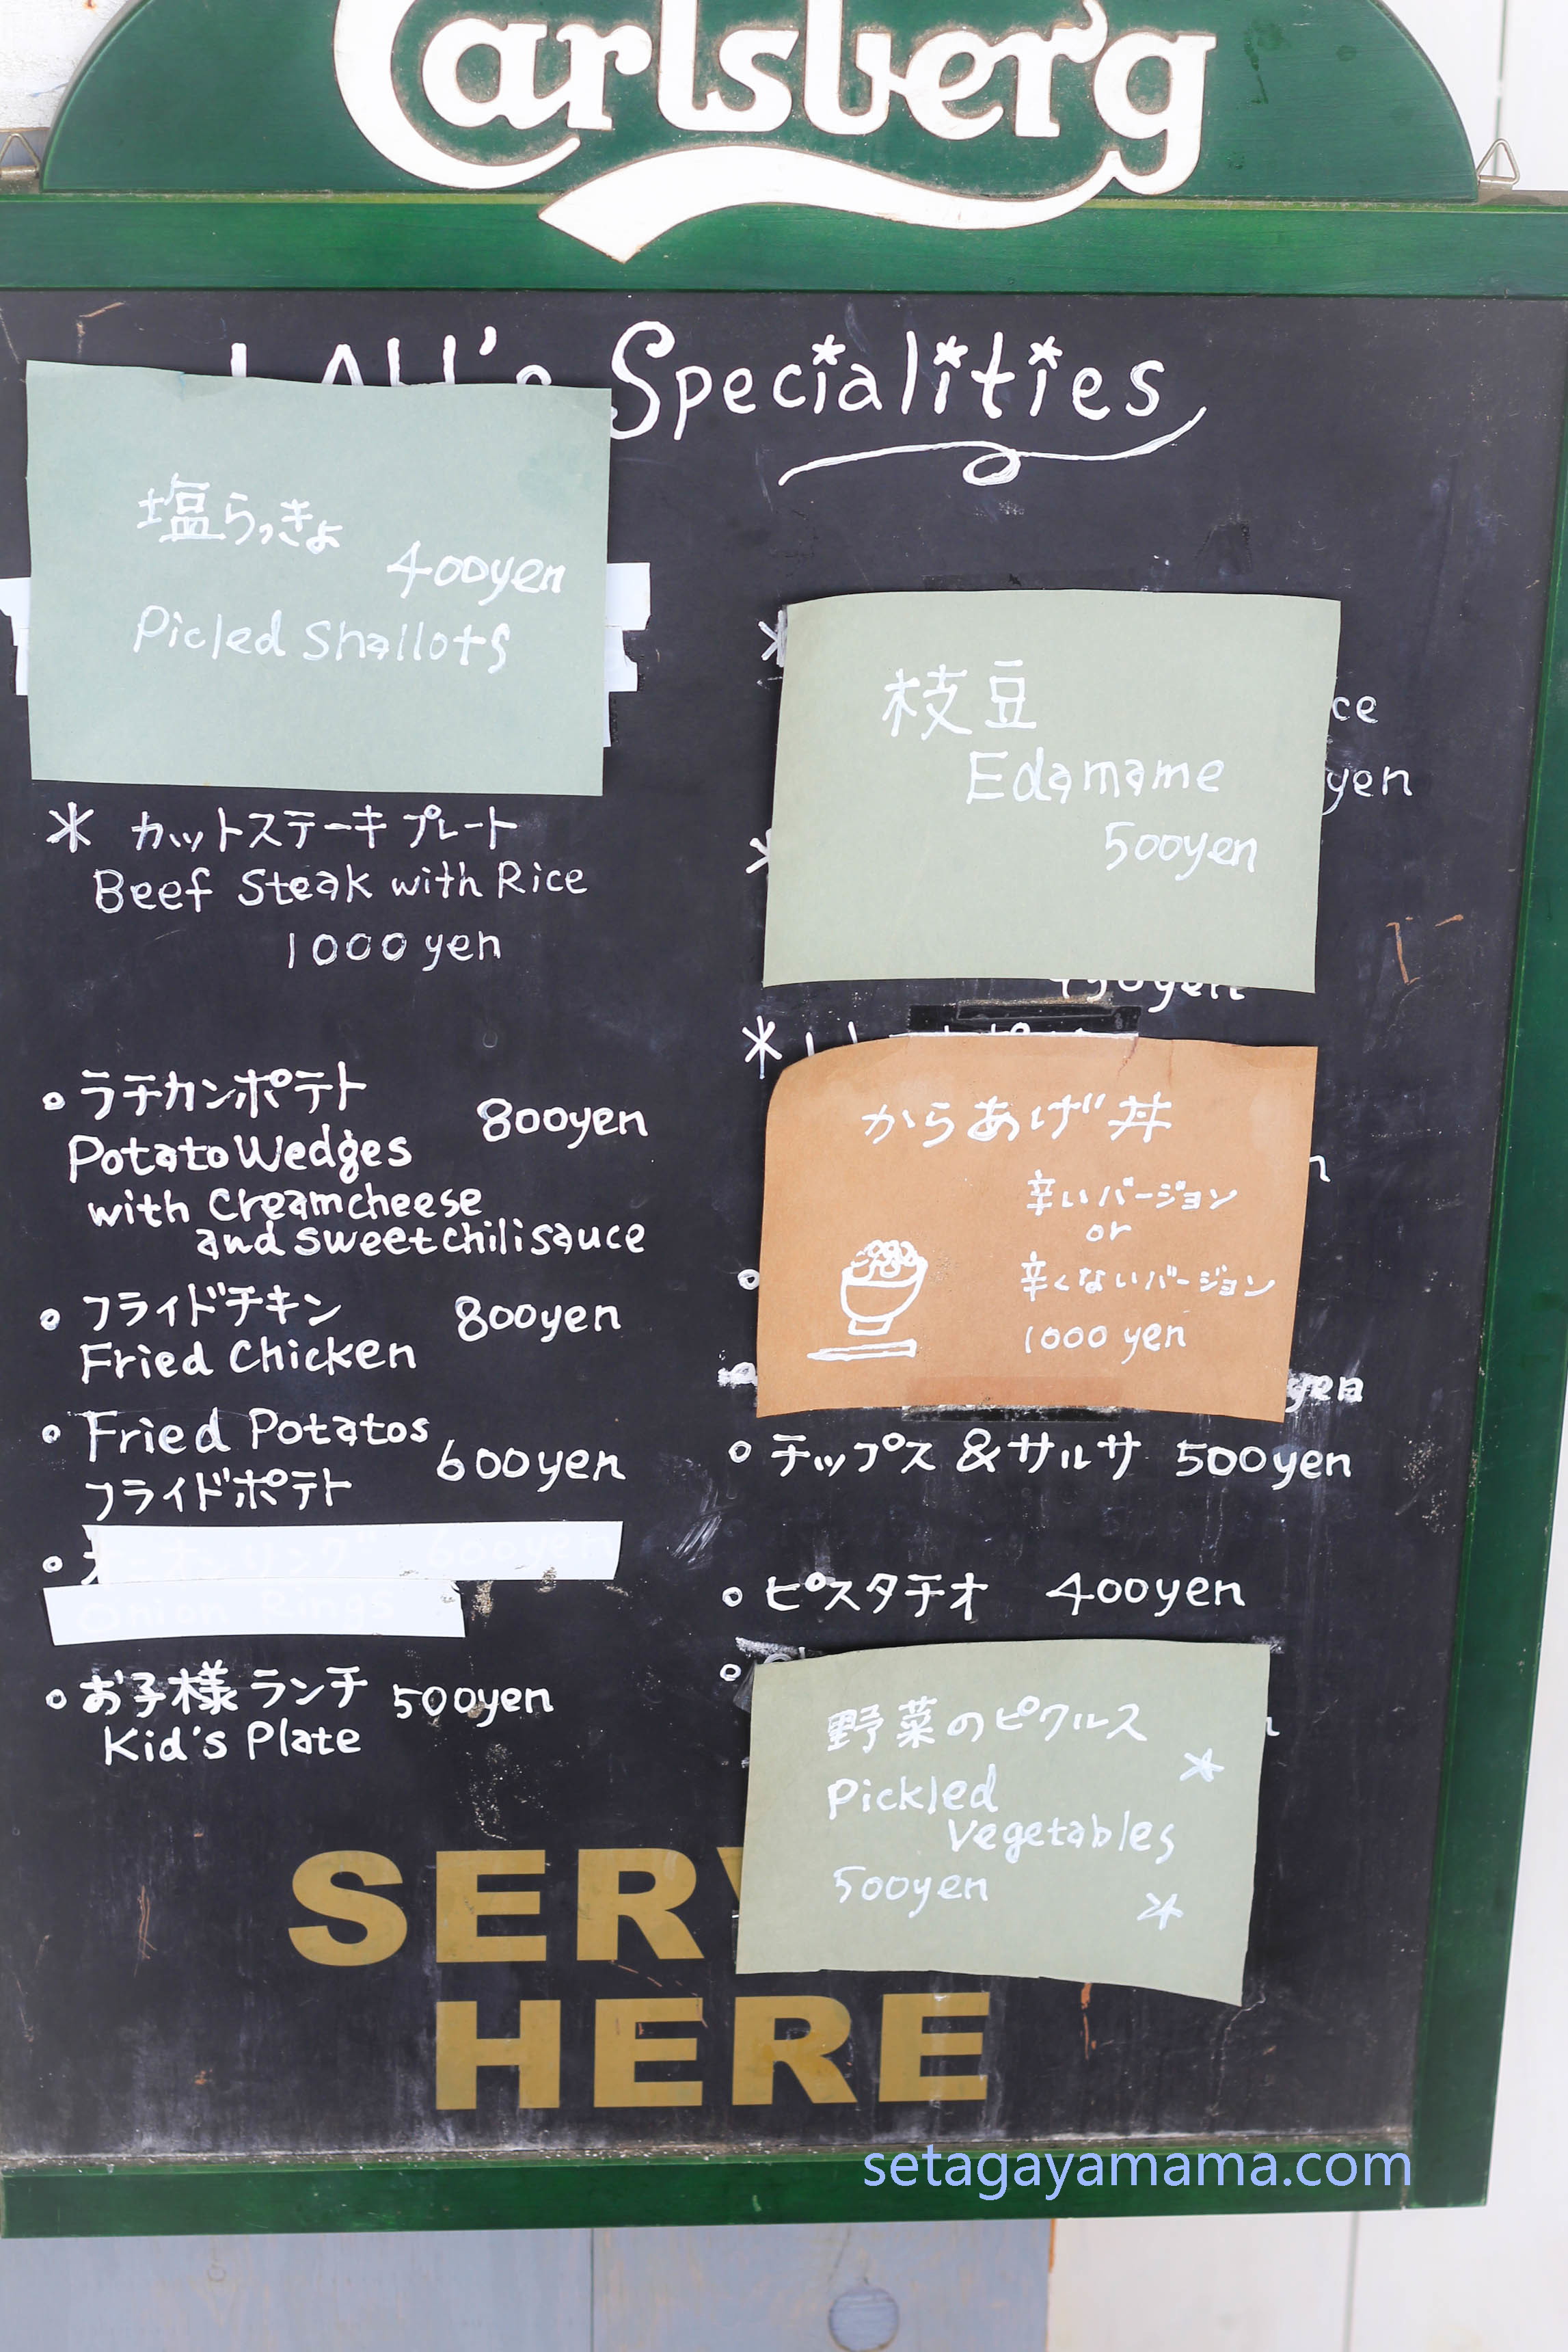 Carlsberg
Specialities
塩らっきょ
400yen
Picled Shallots
* カットステーキプレート
Beef Steak with Rice
1000 yen
ラチカンポテト
800yen
Potato Wedges
with Creamcheese
and sweetchilisauce
フライドチキン
800yen
Fried Chicken
Fried Potatos
600yen
フライドポテト
600yen
お子様ランチ 500yen
Kid's Plate
枝豆
Edamame
500yen
yen
からあげ丼
辛いバージョン
or
辛くないバージョン
1000 yen
yen
チップス & サルサ 500yen
ピスタチオ 400yen
野菜のピクルス
Pickled
Vegetables
500yen
HERE
setagayamama.com